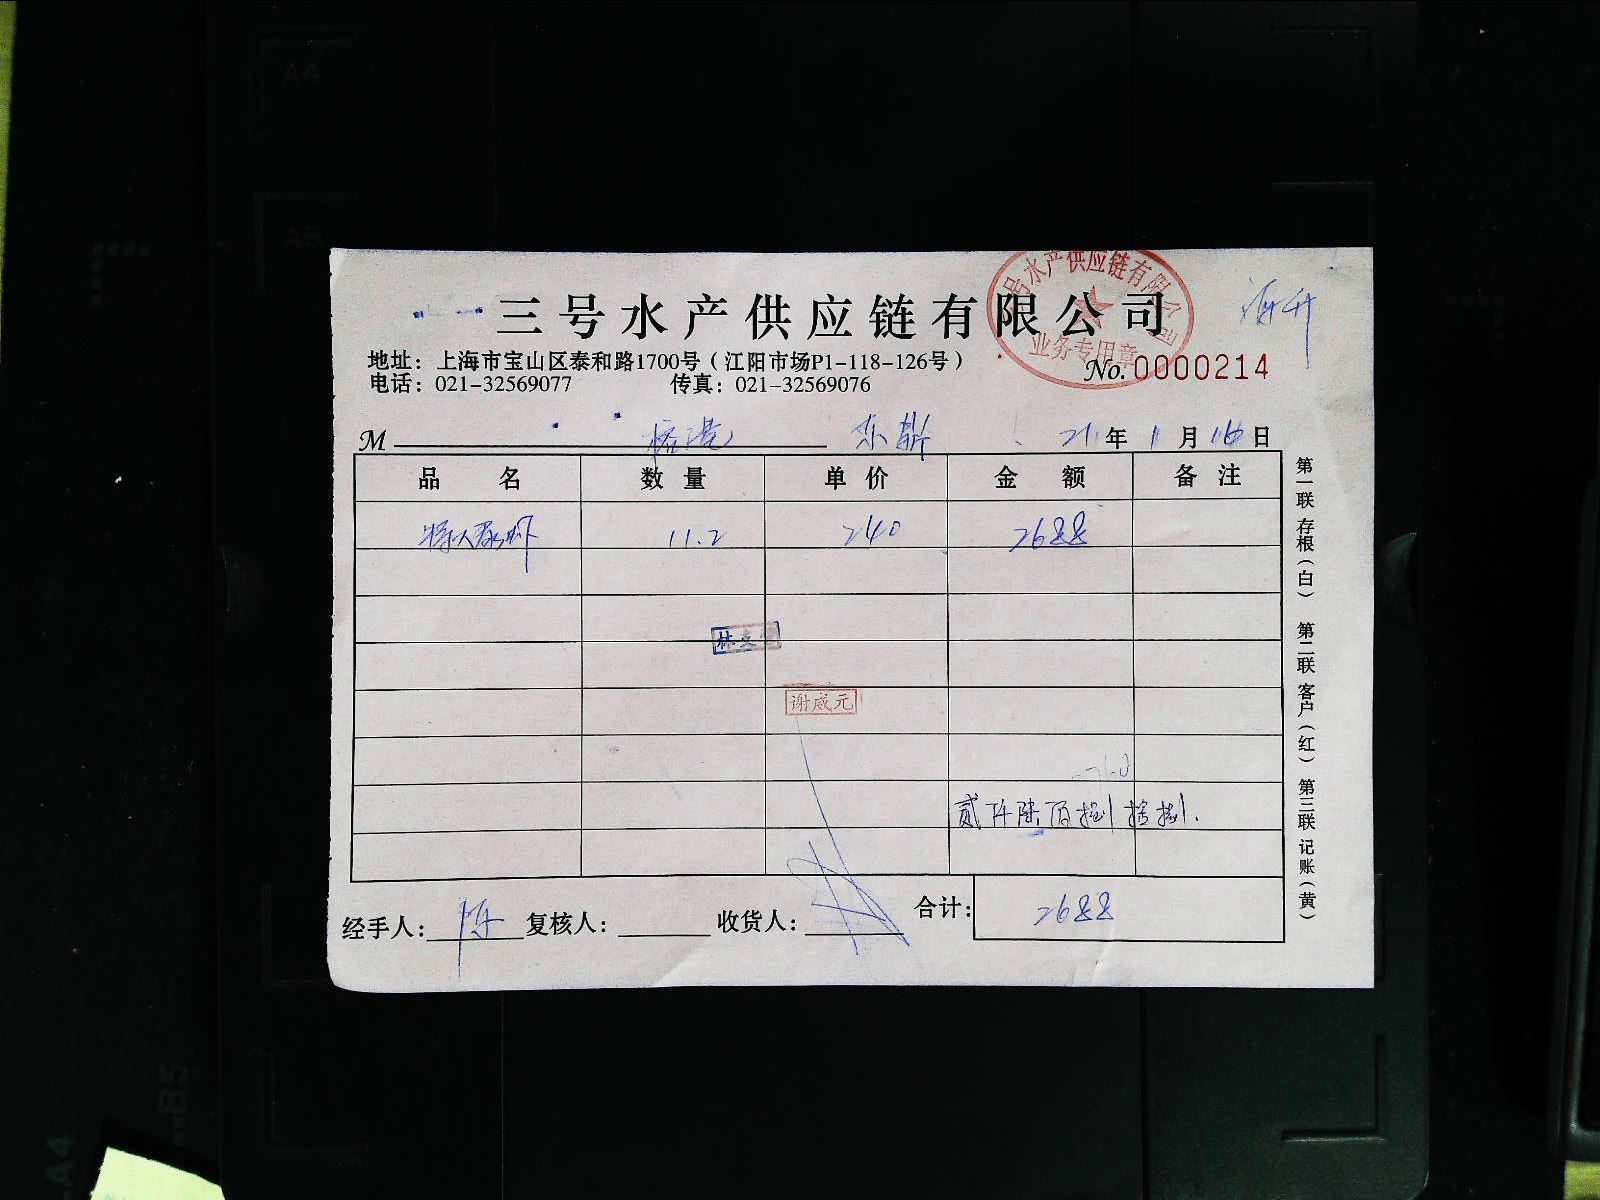 三号水产供应链有限公司
号水产供应链有限公司
业务专用章
海升
地址：上海市宝山区泰和路1700号（江阳市场P1-118-126号）
电话：021-32569077 传真：021-32569076
No.0000214
M 21年1月16日
品名 数量 单价 金额 备注
11.2 240 2688
谢威元
贰仟陆佰捌拾捌.
经手人：陈 复核人： 收货人： 合计：2688
第一联 存根（白） 第二联 客户（红） 第三联 记账（黄）
A4
A5
B5
A4